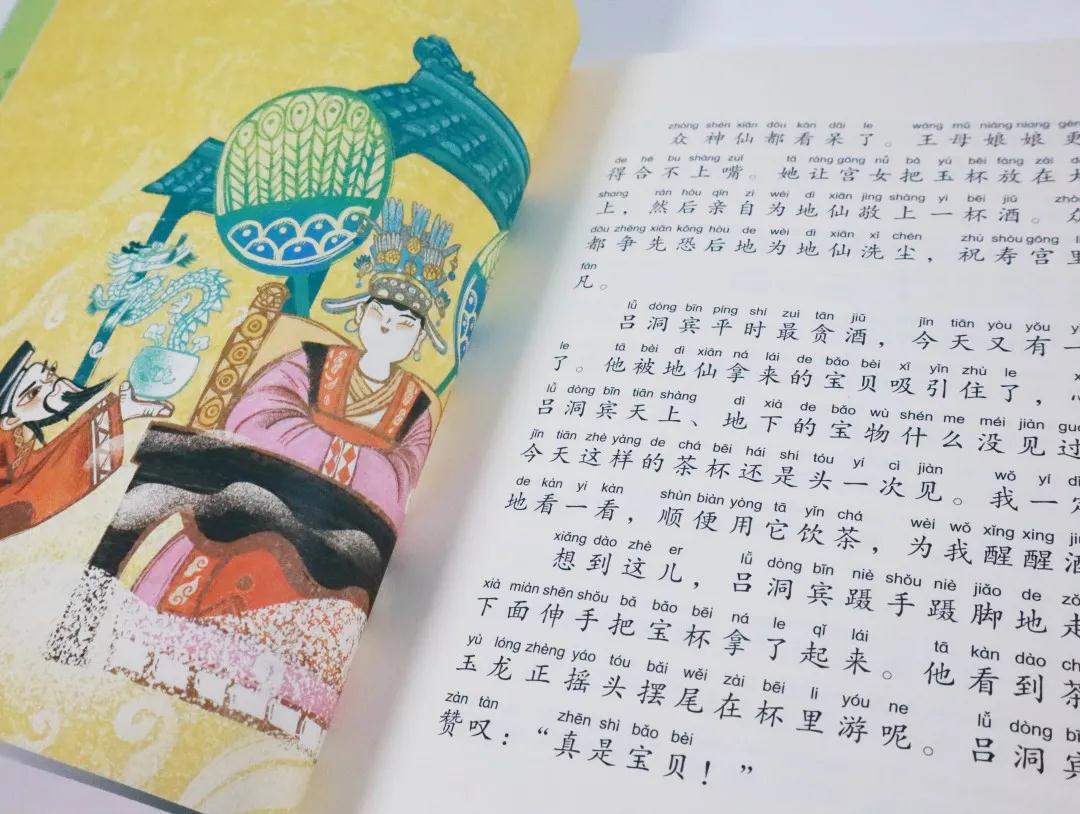 zhòng shén xiān dōu kàn dāi le wáng mǔ niáng niang gèn
众神仙都看呆了。王母娘娘更
de hé bu shàng zuǐ tā ràng gōng nǚ bǎ yù bēi fàng zài
得合不上嘴。她让宫女把玉杯放在
shang rán hòu qīn zì wèi dì xiān jìng shàng yì bēi jiǔ
上，然后亲自为地仙敬上一杯酒。众
dōu zhēng xiān kǒng hòu de wèi dì xiān xǐ chén zhù shòu gōng lǐ
都争先恐后地为地仙洗尘，祝寿宫里
fán
凡。
lǚ dòng bīn píng shí zuì tān jiǔ jīn tiān yòu yǒu
吕洞宾平时最贪酒，今天又有一
le tā bèi dì xiān ná lái de bǎo bèi xī yǐn zhù le
了。他被地仙拿来的宝贝吸引住了，
lǚ dòng bīn tiān shàng dì xià de bǎo wù shén me méi jiàn guo
吕洞宾天上、地下的宝物什么没见过
jīn tiān zhè yàng de chá bēi hái shi tóu yí cì jiàn wǒ yí dì
今天这样的茶杯还是头一次见。我一定
de kàn yi kàn shùn biàn yòng tā yǐn chá wèi wǒ xǐng xing jiǔ
地看一看，顺便用它饮茶，为我醒醒酒
xiǎng dào zhè er lǚ dòng bīn niè shǒu niè jiǎo de zǒ
想到这儿，吕洞宾蹑手蹑脚地走
xià miàn shēn shǒu bǎ bǎo bēi ná le qǐ lái tā kàn dào ch
下面伸手把宝杯拿了起来。他看到茶
yù lóng zhèng yáo tóu bǎi wěi zài bēi li yóu ne lǚ dòng bī
玉龙正摇头摆尾在杯里游呢。吕洞宾
zàn tàn zhēn shì bǎo bèi
赞叹：“真是宝贝！”